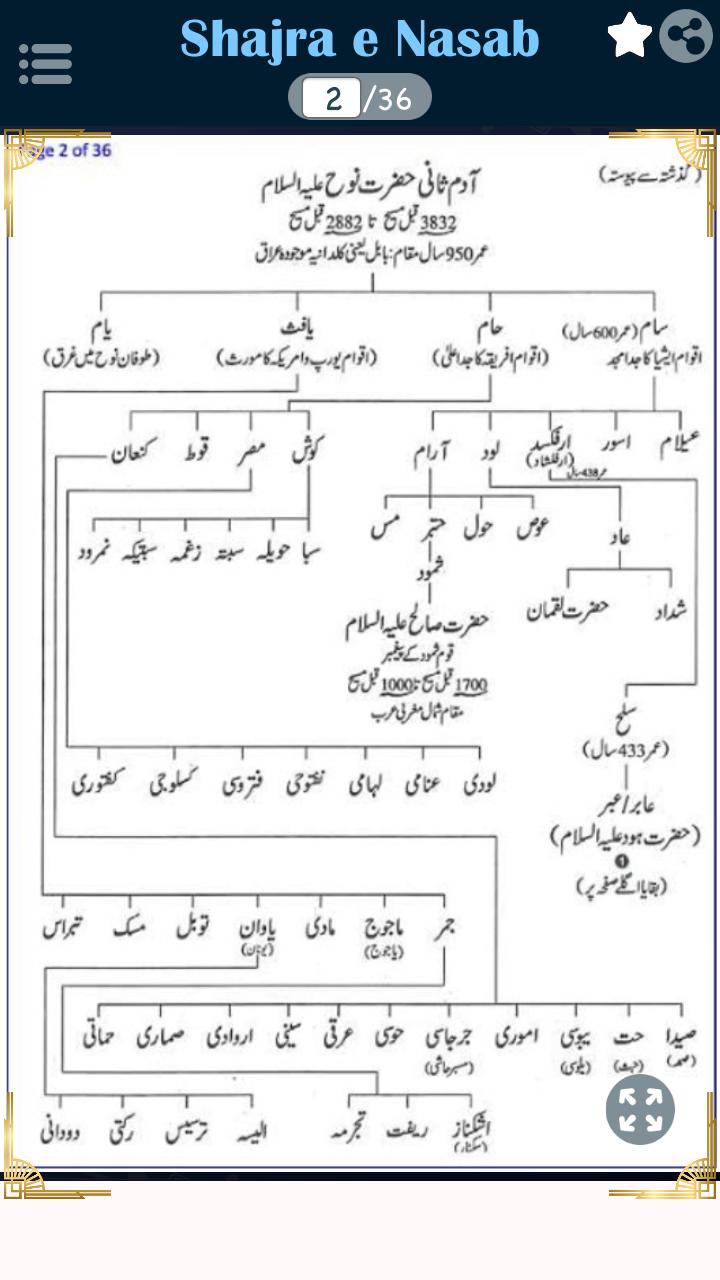 Shajra e Nasab
2 /36
Page 2 of 36
(گذشتہ سے پیوستہ)
آدم ثانی حضرت نوح علیہ السلام
3832 قبل مسیح تا 2882 قبل مسیح
عمر 950 سال مقام: بابل یعنی کلدانیہ موجودہ عراق
سام (عمر 600 سال) حام یافث یام
اقوام ایشیا کا جد امجد (اقوام افریقہ کا جد اعلیٰ) (اقوام یورپ و امریکہ کا مورث) (طوفان نوح میں غرق)
عیلام اسور ارفکسد لود آرام کوش مصر قوط کنعان
(ارفخشاد)
عمر 438 سال
عوص حول جتر مس سبا حویلہ سبتہ زغمہ سبتیکہ نمرود
عاد
ثمود
شداد حضرت لقمان
حضرت صالح علیہ السلام
قوم ثمود کے پیغمبر
1700 قبل مسیح تا 1000 قبل مسیح
مقام شمال مغربی عرب
سلح
(عمر 433 سال)
لودی عنامی لہابی نفتوحی فتروسی کسلوجی کفتوری
عابر/عبر
(حضرت ہود علیہ السلام)
1
(بقایا اگلے صفحہ پر)
جمر ماجوج مادی یاوان توبل مسک تیراس
(یاجوج) (یونان)
صیدا حت یبوسی اموری جرجاسی حوی عرقی سینی اروادی صماری حماتی
اشکناز ریفت تجرمہ الیسہ ترسیس رکتی دودانی